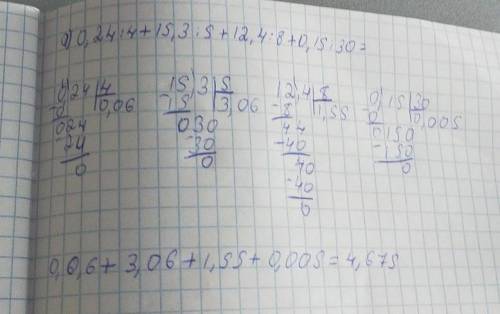 а) 0,24:4+15,3:5+12,4:8+0,15:30=
0,24 4 15,3 5 12,4 8 0,15 30
0 0,06 15 3,06 -8 1,55 0 0,005
024 030 44 0150
-24 -30 -40 -150
0 0 40 0
-40
0
0,0,6+3,06+1,55+0,005=4,675